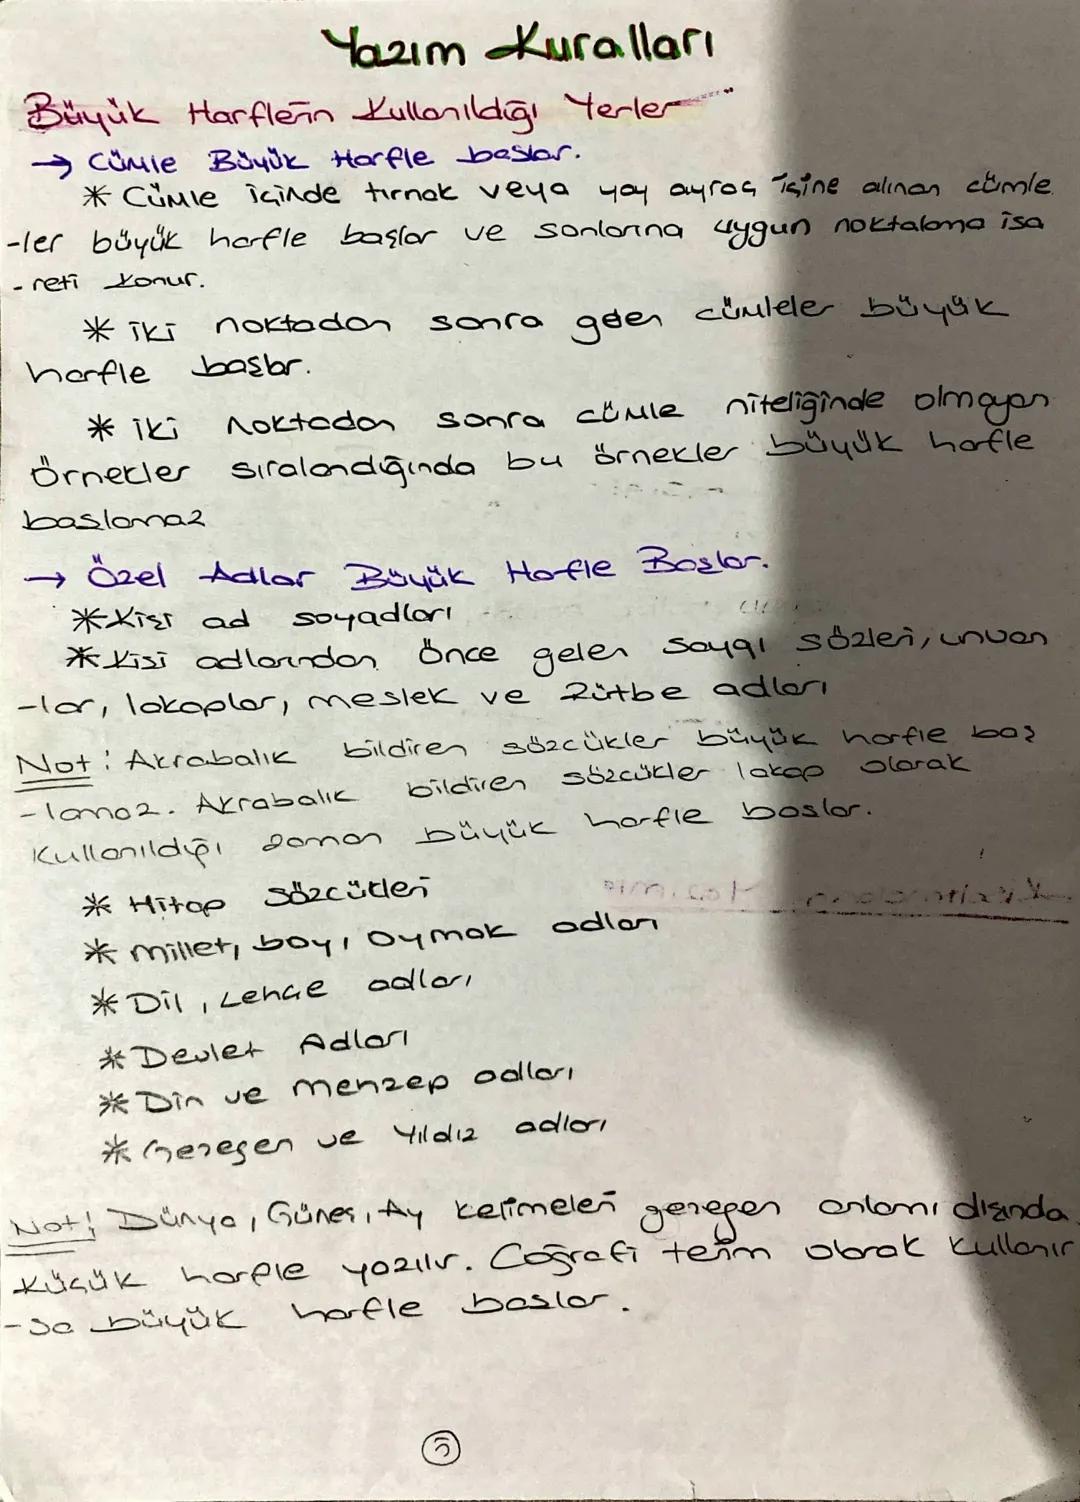 Yazım Kuralları
Büyük Harflerin Kullanıldığı Yerler
→ Cümle Büyük Harfle başlar.
* Cümle içinde tırnak veya yay ayraç içine alınan cümle
-ler büyük harfle başlar ve sonlarına uygun noktalama işa
-reti konur.
* iki noktadan sonra gelen cümleler büyük
harfle başlar.
* iki noktadan sonra cümle niteliğinde olmayan
örnekler sıralandığında bu örnekler büyük harfle
başlamaz
→ Özel Adlar Büyük Harfle Başlar.
* Kişi ad soyadları
* Kişi adlarından önce gelen saygı sözleri, unvan
-lar, lakaplar, meslek ve rütbe adları
Not: Akrabalık bildiren sözcükler büyük harfle baş
-lamaz. Akrabalık bildiren sözcükler lakap olarak
Kullanıldığı zaman büyük harfle başlar.
* Hitap sözcükleri
* millet, boy, oymak adları
* Dil, Lehçe adları
* Devlet Adları
* Din ve menzep adları
* Gezegen ve Yıldız adları
Not: Dünya, Güneş, Ay kelimeleri gezegen anlamı dışında
küçük harfle yazılır. Coğrafi terim olarak kullanır
-sa büyük harfle başlar.